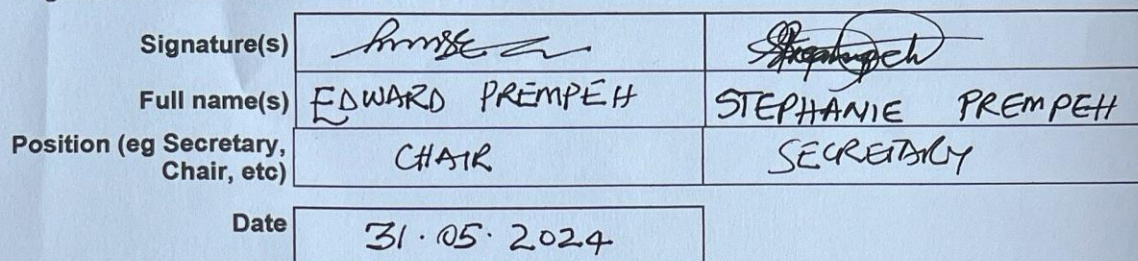 Signature(s)
Full name(s) EDWARD PREMPEH STEPHANIE PREMPEH
Position (eg Secretary, CHAIR SECRETARY
Chair, etc)
Date 31.05.2024